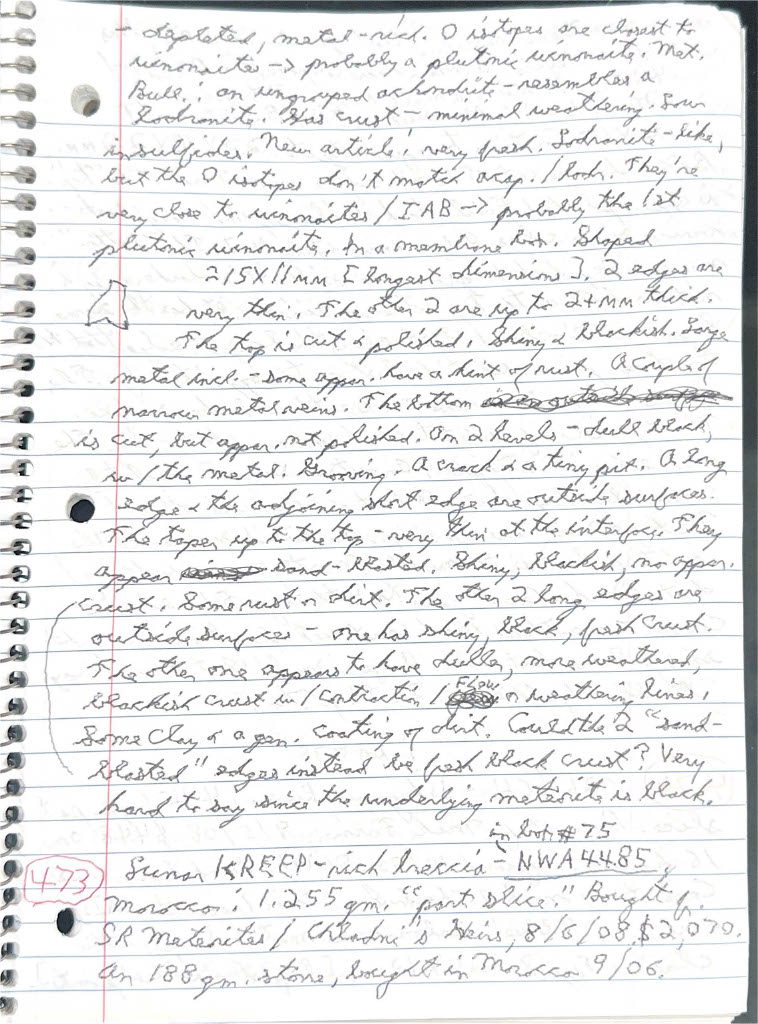 - depleted, metal-rich. O isotopes are closest to
winonaites -> probably a plutonic winonaite. Met.
Bull.: an ungrouped achondrite - resembles a
Lodranite. Has crust - minimal weathering. Low
in sulfides. New article: very fresh. Lodranite-like,
but the O isotopes don't match acap. / lodr. They're
very close to winonaites / IAB -> probably the 1st
plutonic winonaite. In a membrane box. Shaped
215X11mm [longest dimensions]. 2 edges are
very thin. The other 2 are up to 2+mm thick.
The top is cut & polished. Shiny & blackish. Large
metal incl. - some appar. have a hint of rust. A couple of
narrow metal veins. The bottom
is cut, but appar. not polished. On 2 levels - dull black,
w/ the metal. Grooving. A crack & a tiny pit. A long
edge & the adjoining short edge are outside surfaces.
The taper up to the top - very thin at the interface. They
appear sand-blasted. Shiny, blackish, no appar.
crust. Some rust or dirt. The other 2 long edges are
outside surfaces - one has shiny, black, fresh crust.
The other one appears to have duller, more weathered,
blackish crust w/ contraction / Flow or weathering lines.
Some clay & a gen. coating of dirt. Could the 2 "sand-
blasted" edges instead be fresh black crust? Very
hard to say since the underlying meteorite is black.
in box #75
473 Lunar KREEP-rich breccia - NWA4485,
Morocco: 1.255 gm. "part slice." Bought f.
SR Meteorites / Chladni's Heirs, 8/6/08. $2,070.
An 188 gm. stone, bought in Morocco 9/06.